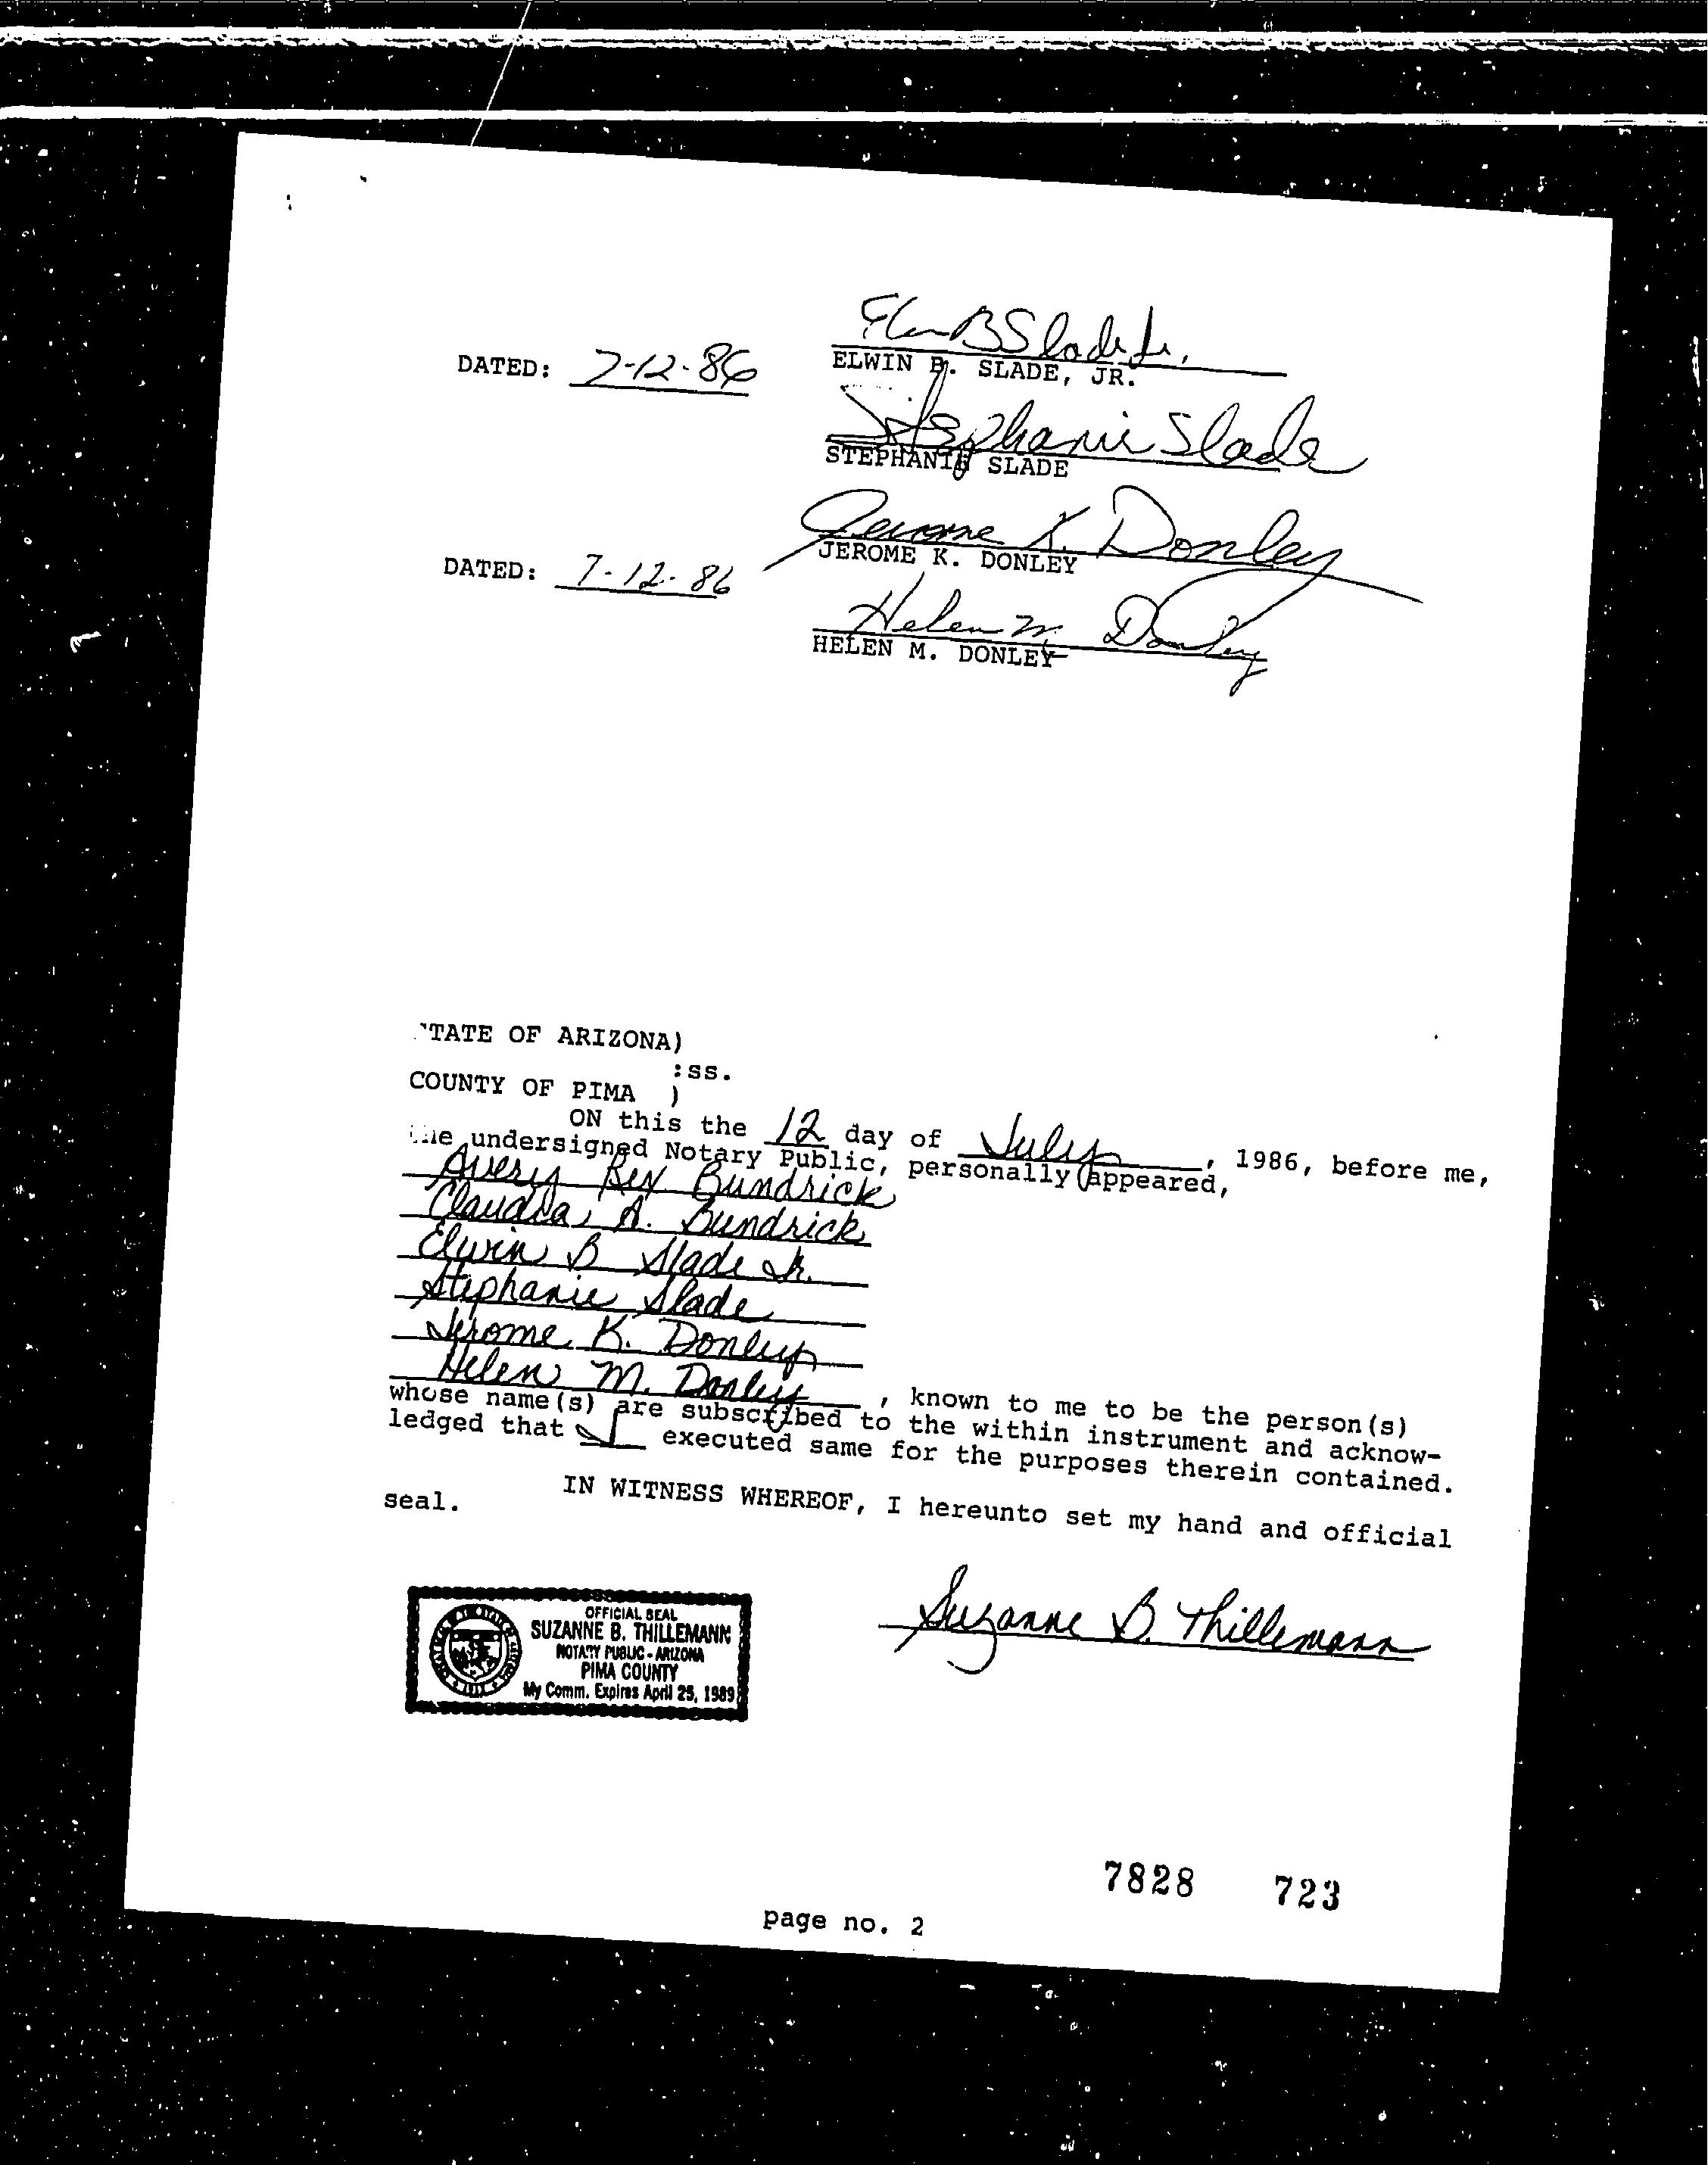 Elwin B Slade Jr.
DATED: 7-12-86 ELWIN B. SLADE, JR.
Stephanie Slade
STEPHANIE SLADE
Jerome K. Donley
DATED: 7-12-86 JEROME K. DONLEY
Helen M. Donley
HELEN M. DONLEY
TATE OF ARIZONA)
:ss.
COUNTY OF PIMA )
ON this the 12 day of July, 1986, before me,
the undersigned Notary Public, personally appeared,
Avery Rex Bundrick
Claudia A. Bundrick
Elwin B Slade Jr.
Stephanie Slade
Jerome K. Donley
Helen M. Donley, known to me to be the person(s)
whose name(s) are subscribed to the within instrument and acknow-
ledged that executed same for the purposes therein contained.
IN WITNESS WHEREOF, I hereunto set my hand and official
seal.
Suzanne B. Thillemann
OFFICIAL SEAL
SUZANNE B. THILLEMANN
NOTARY PUBLIC - ARIZONA
PIMA COUNTY
My Comm. Expires April 25, 1989
7828 723
page no. 2